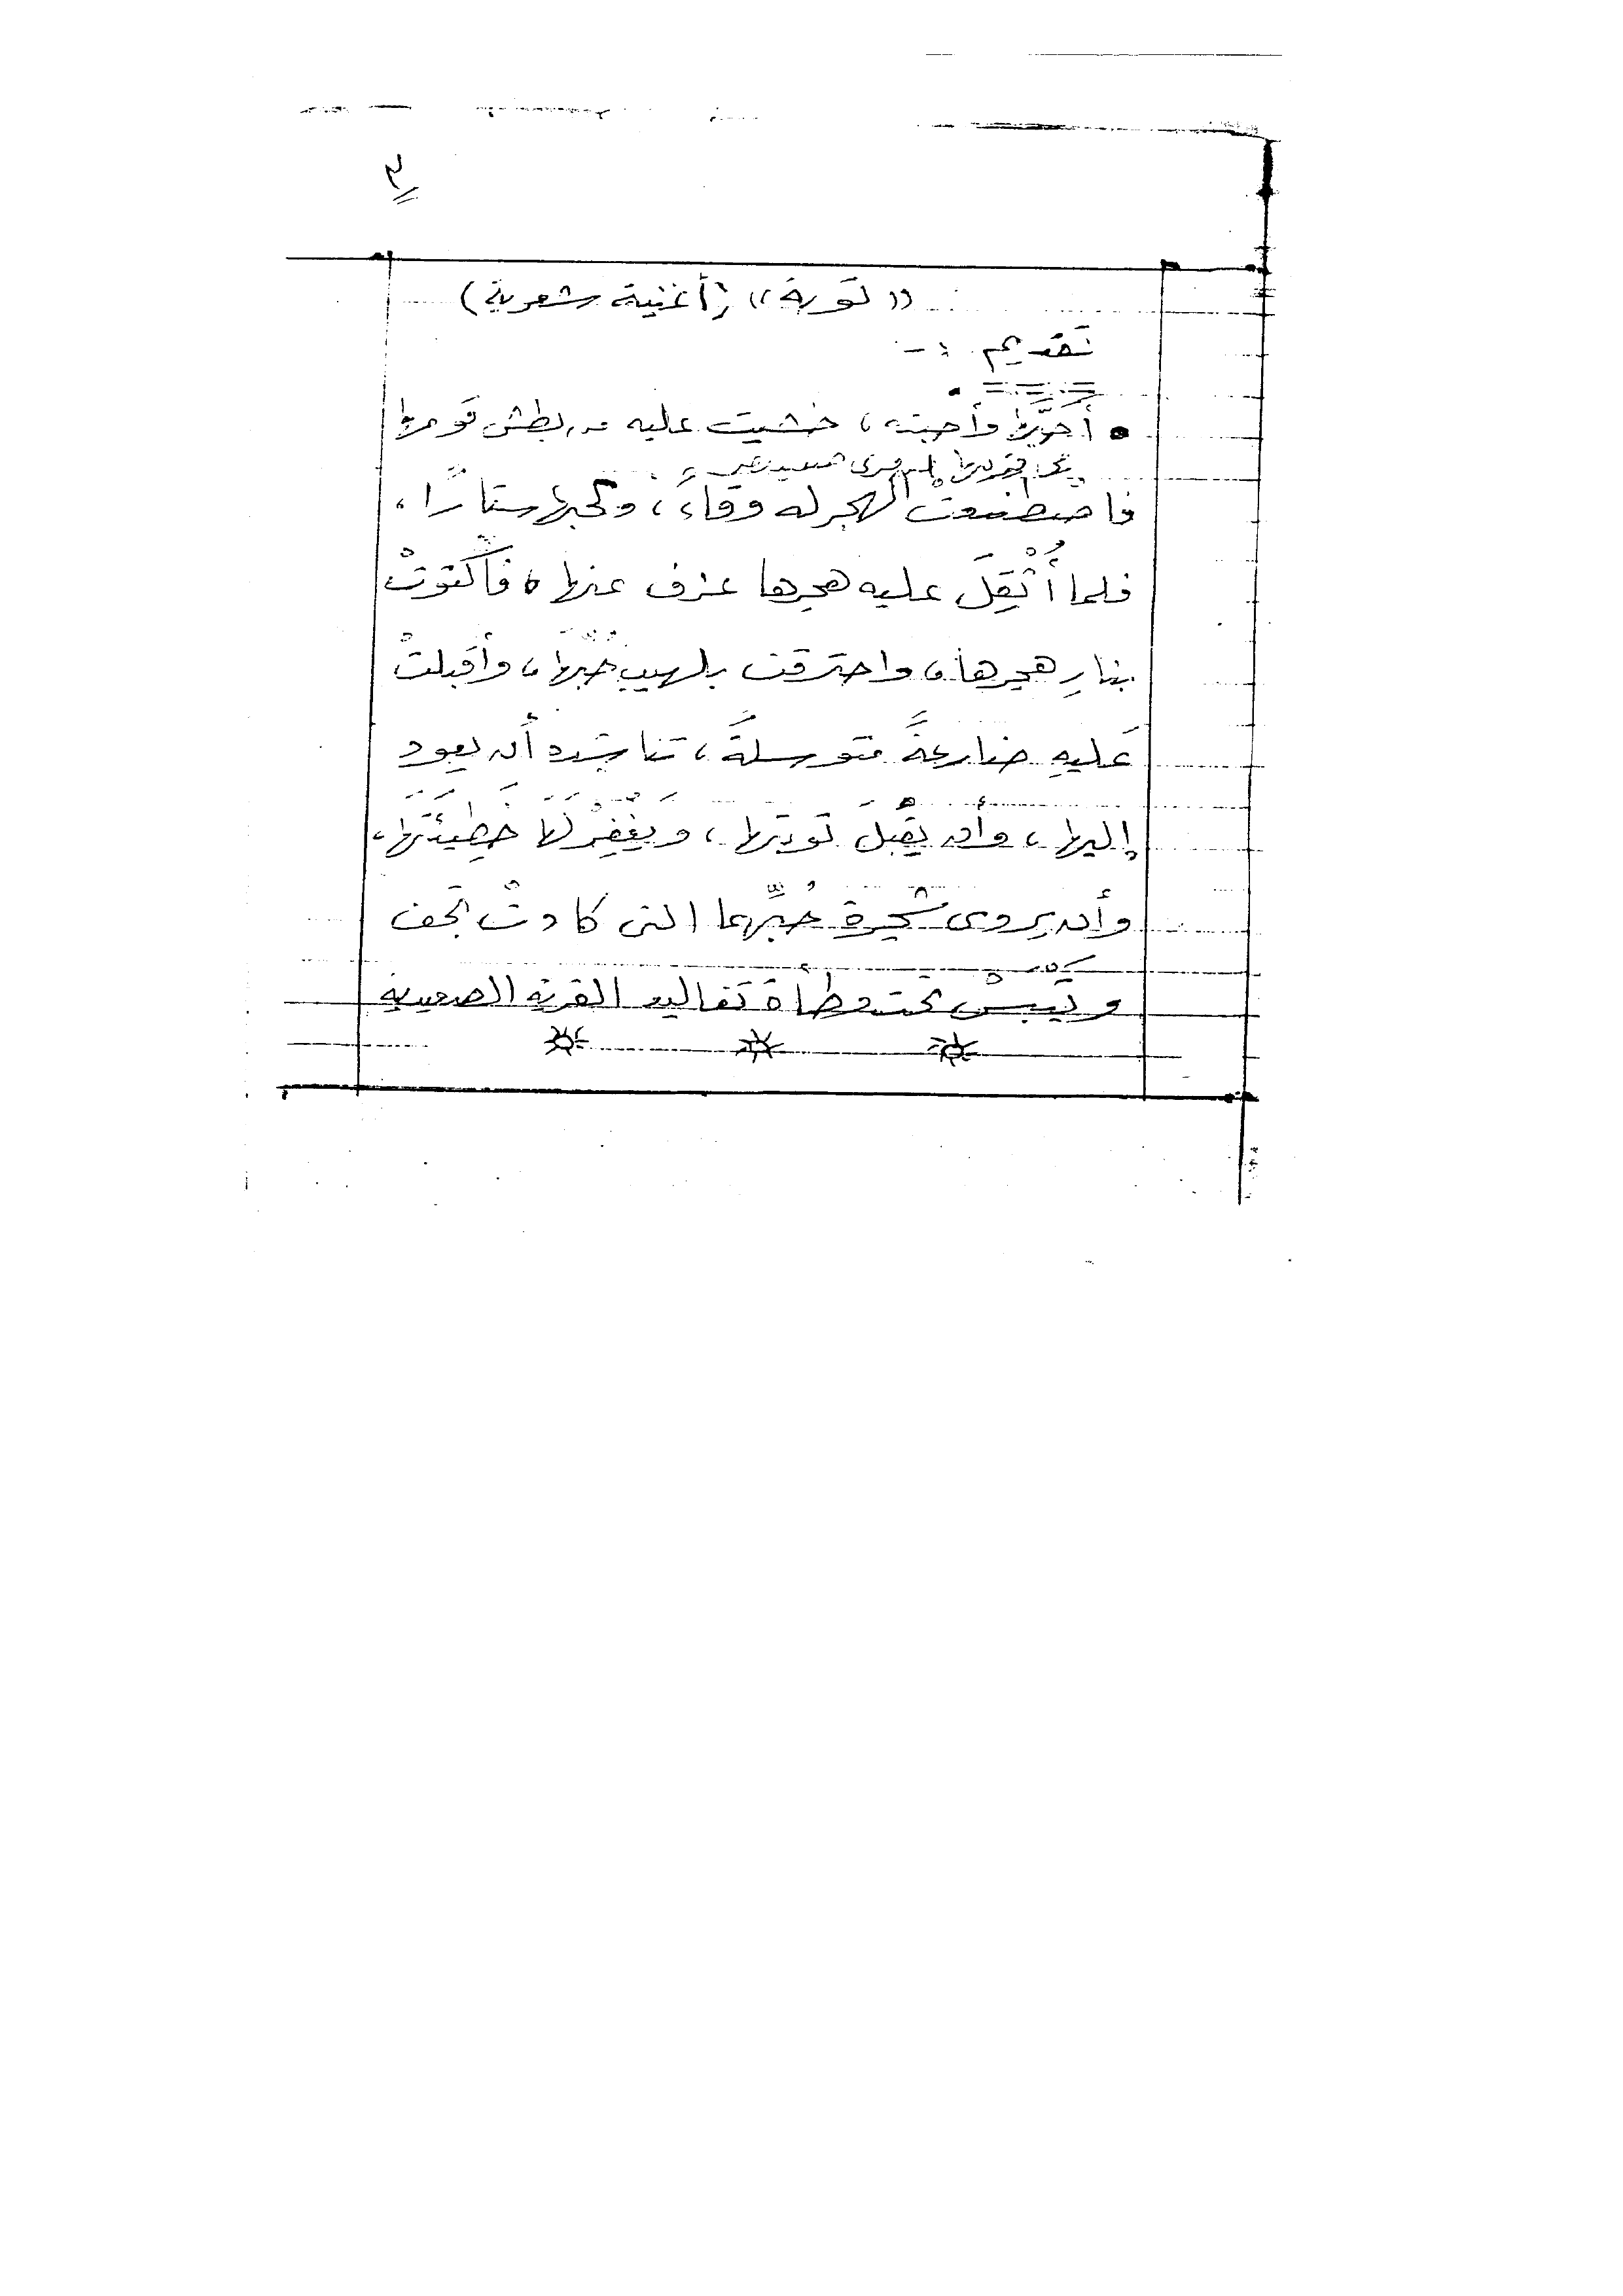 ٣
((توبة)) (أغنية شعرية)
تقديم :-
• أحبَّها وأحبته، خشيت عليه من بطش قومها
فاصطنعتْ الهجر له وقاءً، ولحبها ستارًا،
فلما أُثْقِلَ عليه هجرها عزف عنها، فاكتوتْ
بنارِ هجرها، واحترقت بلهيبِ حُبِّها، وأقبلتْ
عَليهِ ضارعةً متوسلةً، تناشده أن يعود
إليها، وأن يقْبَلَ توبتها، ويَغْفِرْ لَهَا خَطِيئَتَهَا،
وأن يروى شجرة حُبِّهما التى كادتْ تجف
وتَيْبَسْ تحت وطأة تَقاليد القرية الصعيدية